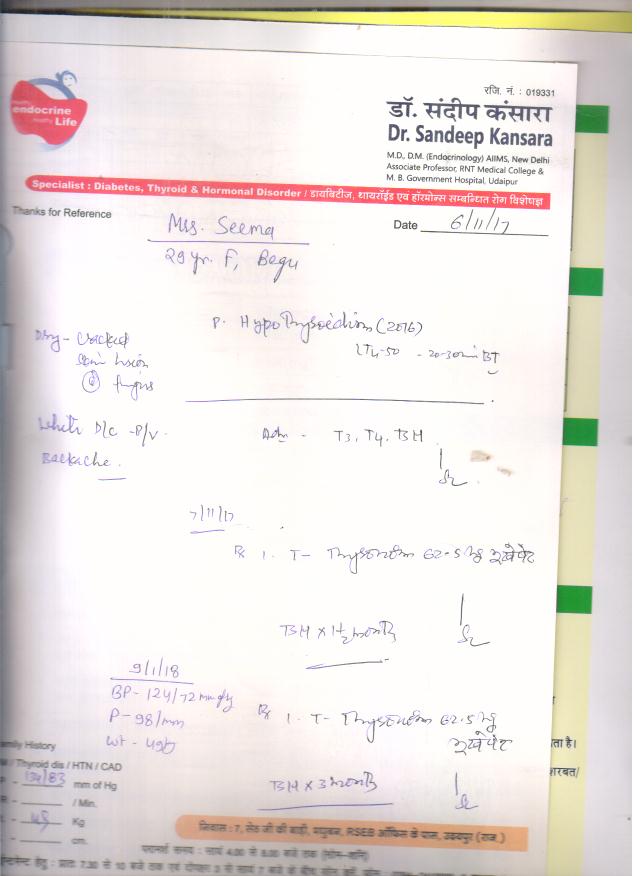 रजि. नं. : 019331
healthy
endocrine
healthy Life
डॉ. संदीप कंसारा
Dr. Sandeep Kansara
M.D., D.M. (Endocrinology) AIIMS, New Delhi
Associate Professor, RNT Medical College &
M. B. Government Hospital, Udaipur
Specialist : Diabetes, Thyroid & Hormonal Disorder / डायबिटीज, थायरॉईड एवं हॉरमोन्स सम्बन्धित रोग विशेषज्ञ
Thanks for Reference
Date 6/11/17
Mrs. Seema
29 yr. F, Begu
P. Hypothyroidism (2016)
LT4-50 - 20-30 min BT
Dry - Cracked
fingers
White D/c - P/V.
Backache.
Adv - T3, T4, TSH
7/11/17
Rx 1. T- Thyronorm 62.5 ug भूखे पेट
TSH x 1 1/2 month
9/1/18
BP - 124/72 mmHg
P - 98/min
Wt - 49
Rx 1. T- Thyronorm 62.5 ug
भूखे पेट
TSH x 3 month
amily History
/ Thyroid dis / HTN / CAD
P - 134/83 mm of Hg
R - / Min.
Kg
- cm.
ता है।
शरबत/
निवास : 7, सेठ जी की बाड़ी, मधुबन, RSEB ऑफिस के पास, उदयपुर (राज.)
परामर्श समय : सायं 4.00 से 8.00 बजे तक